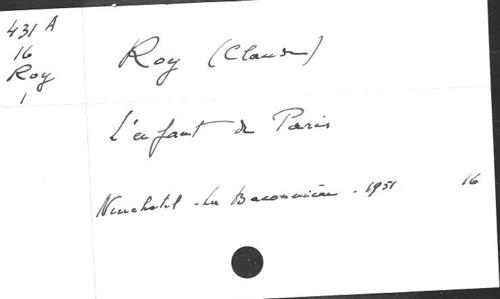 431 A
16
Roy
1
Roy (Claude)
L'enfant de Paris
Neuchatel - La Baconnière - 1951 16